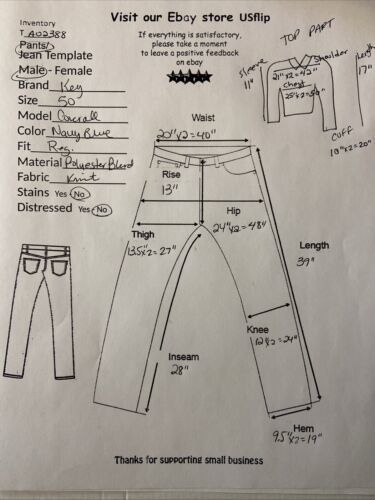 Inventory
T A02388
Pants/
Jean Template
Male - Female
Brand Key
Size 50
Model Coverall
Color Navy Blue
Fit Reg.
Material Polyester Blend
Fabric Knit
Stains Yes No
Distressed Yes No
Visit our Ebay store USflip
If everything is satisfactory,
please take a moment
to leave a positive feedback
on ebay
TOP PART
Sleeve
11"
Shoulder
21"x2=42"
Chest
25"x2=50"
Length
17"
Cuff
10"x2=20"
Waist
20"x2=40"
Rise
13"
Hip
24"x2=48"
Thigh
13.5"x2=27"
Length
39"
Knee
12"x2=24"
Inseam
28"
Hem
9.5"x2=19"
Thanks for supporting small business